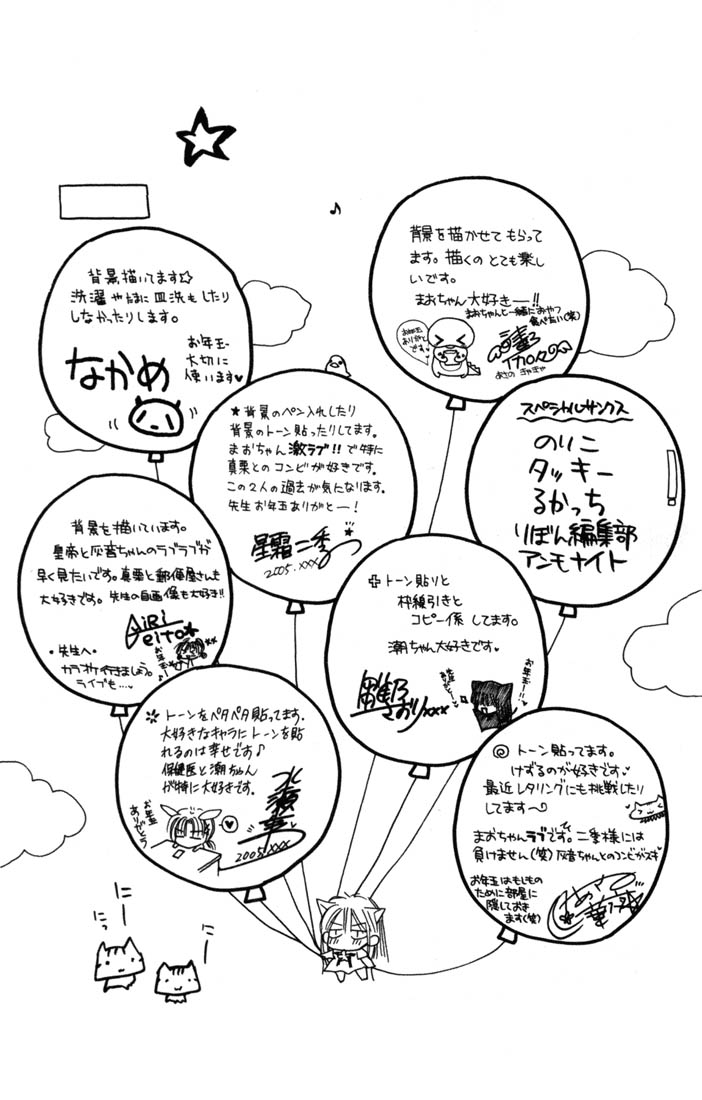 背景を描かせてもらって
ます。描くのとても楽し
いです。
まおちゃん大好きー!!
まおちゃんと一緒におやつ
食べたい(笑)
お年玉
ありがと
です。
あさの
背景描いてます☆
洗濯やたまに皿洗もしたり
しなかったりします。
お年玉
大切に
使います♥
なかめ
★背景のペン入れしたり
背景のトーン貼ったりしてます。
まおちゃん激ラブ!!で特に
真栗とのコンビが好きです。
この2人の過去が気になります。
先生お年玉ありがとー!
星霜二季
2005.xxx
スペシャルサンクス
のりこ
タッキー
るかっち
りぼん編集部
アンモナイト
背景を描いています。
皇帝と灰音ちゃんのラブラブが
早く見たいです。真栗と郵便屋さんも
大好きです。先生の自画像も大好き!!
AiRi
eito★
・先生へ・
カラオケ行きましょう。
ライブも…♥
トーン貼りと
枠線引きと
コピー係してます。
潮ちゃん大好きです♥
さおりxxx
お年玉ー!!
トーンをペタペタ貼ってます。
大好きなキャラにトーンを貼
れるのは幸せです♪
保健医と潮ちゃん
が特に大好きです。
お年玉
ありがとう
2005.xxx
◎トーン貼ってます。
けずるのが好きです♥
最近レタリングにも挑戦したり
してます〜
まおちゃんラブです。二季様には
負けません(笑)灰音ちゃんとのコンビがスキ
お年玉はもしもの
ために部屋に
隠しておき
ます(笑)
にー
にっ
にー